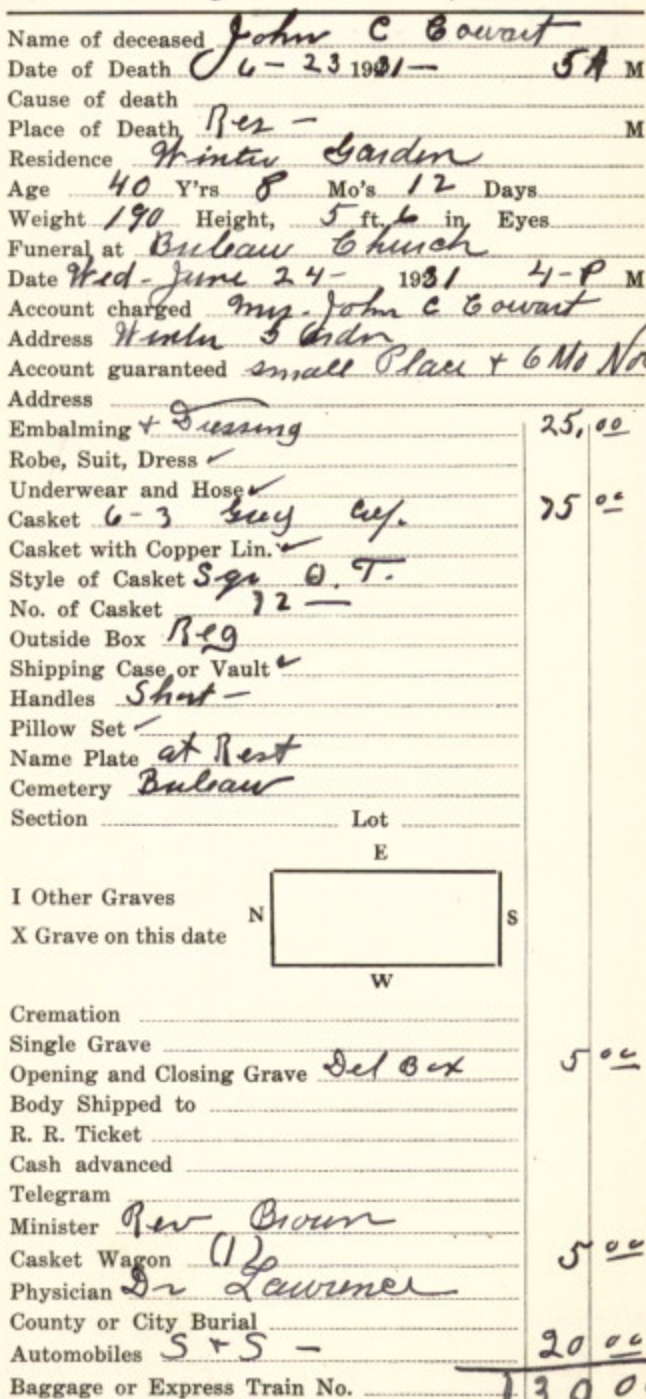 Name of deceased John C Cowart
Date of Death 6-23 1931 - 5 A M
Cause of death
Place of Death Res - M
Residence Winter Garden
Age 40 Y'rs 8 Mo's 12 Days
Weight 190 Height, 5 ft. 6 in Eyes
Funeral at Beulaw Church
Date Wed - June 24 - 1931 4-P M
Account charged Mrs. John C Cowart
Address Winter Gardn
Account guaranteed small Place + 6 Mo
Address
Embalming + Dressing 25,00
Robe, Suit, Dress
Underwear and Hose
Casket 6-3 Grey 75 00
Casket with Copper Lin.
Style of Casket Sqr O. T.
No. of Casket 12 —
Outside Box Reg
Shipping Case or Vault
Handles Short -
Pillow Set
Name Plate at Rest
Cemetery Beulaw
Section Lot
E
I Other Graves
N S
X Grave on this date
W
Cremation
Single Grave
Opening and Closing Grave Del Box 5 00
Body Shipped to
R. R. Ticket
Cash advanced
Telegram
Minister Rev Brown
Casket Wagon (1) 5 00
Physician Dr Lawrence
County or City Burial
Automobiles S + S - 20 00
Baggage or Express Train No. 130 00